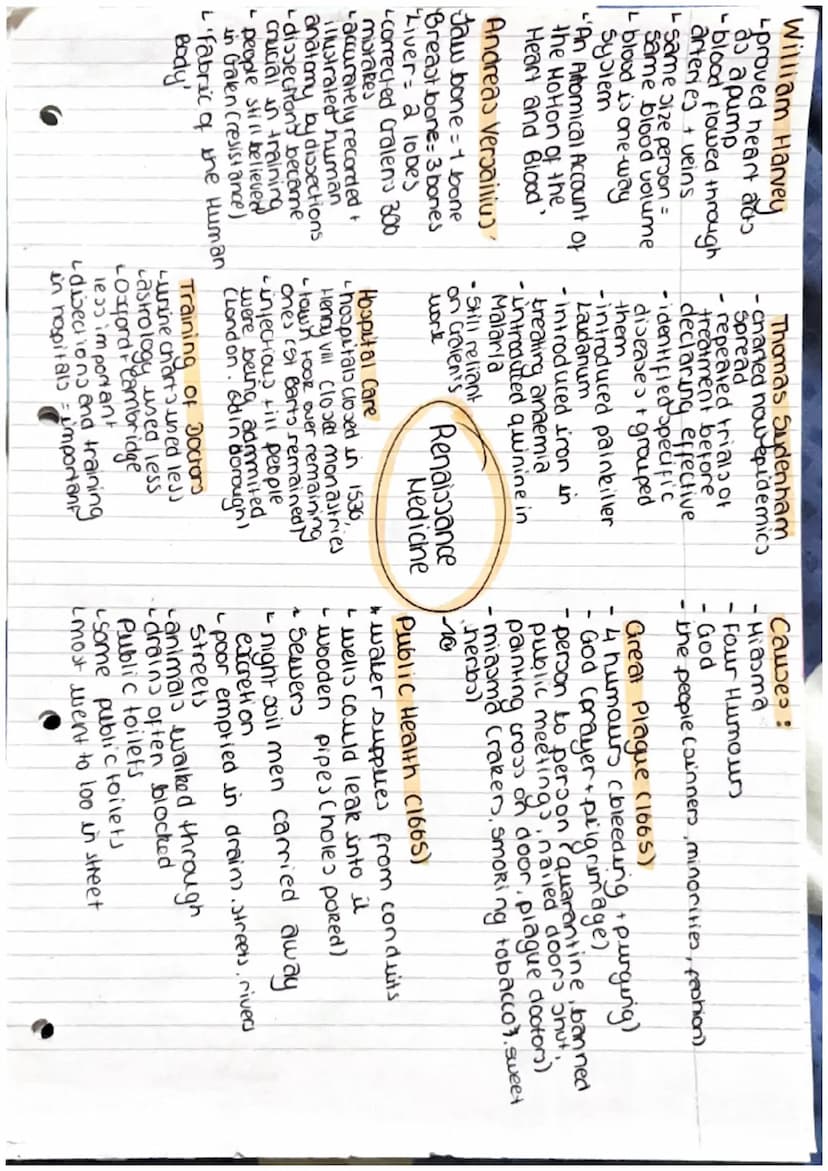 William Harvey
↳ proved heart acts
as a pump
↳ blood flowed through
arteries + veins
↳ same size person =
same blood volume
↳ blood is one-way
system
↳ 'An Antomical Account of
the Motion of the
Heart and Blood'
Andreas Versailius
Jaw bone = 1 bone
Breast bone = 3 bones
Liver = 2 lobes
↳ corrected Galens 300
mistakes
↳ accurately recorded +
illustrated human
anatomy by dissections
↳ dissections became
crucial in training
↳ people still believed
in Galen (resistance)
↳ 'Fabric of the Human
Body'
Thomas Sydenham
- charted how epidemics
spread
- repeated trials of
treatment before
declaring effective
- identified specific
diseases + grouped
them
- introduced painkiller
Laudanum
- introduced iron in
treating anaemia
- introduced quinine in
Malaria
- Still reliant
on Galen's
work
Renaissance
Medicine
Hospital Care
↳ hospitals closed in 1536,
Henry VIII closed monastries
↳ town took over remaining
ones (St Barts remained)
↳ infectious + ill people
were being admitted
(London, Edinborough)
Training of Doctors
↳ urine charts used less
↳ astrology used less
↳ Oxford + Cambridge
less important
↳ disections and training
in hospitals = important
Causes:
- Miasma
- Four Humours
- God
- the people (sinners, minorities, fashion)
Great Plague (1665)
- 4 humours (bleeding + purging)
- God (prayer + pilgrimage)
- person to person (quarantine, banned
public meetings, nailed doors shut,
painting cross on door, plague doctors)
- miasma (rakers, smoking tobacco, sweet
herbs)
Public Health (1665)
* water supplies from conduits
↳ wells could leak into it
↳ wooden pipes (holes poked)
* Sewers
↳ night soil men carried away
excretion
↳ poor emptied in drains, streets, rivers
streets
↳ animals walked through
↳ drains often blocked
Public toilets
↳ some public toilets
↳ most went to loo in street